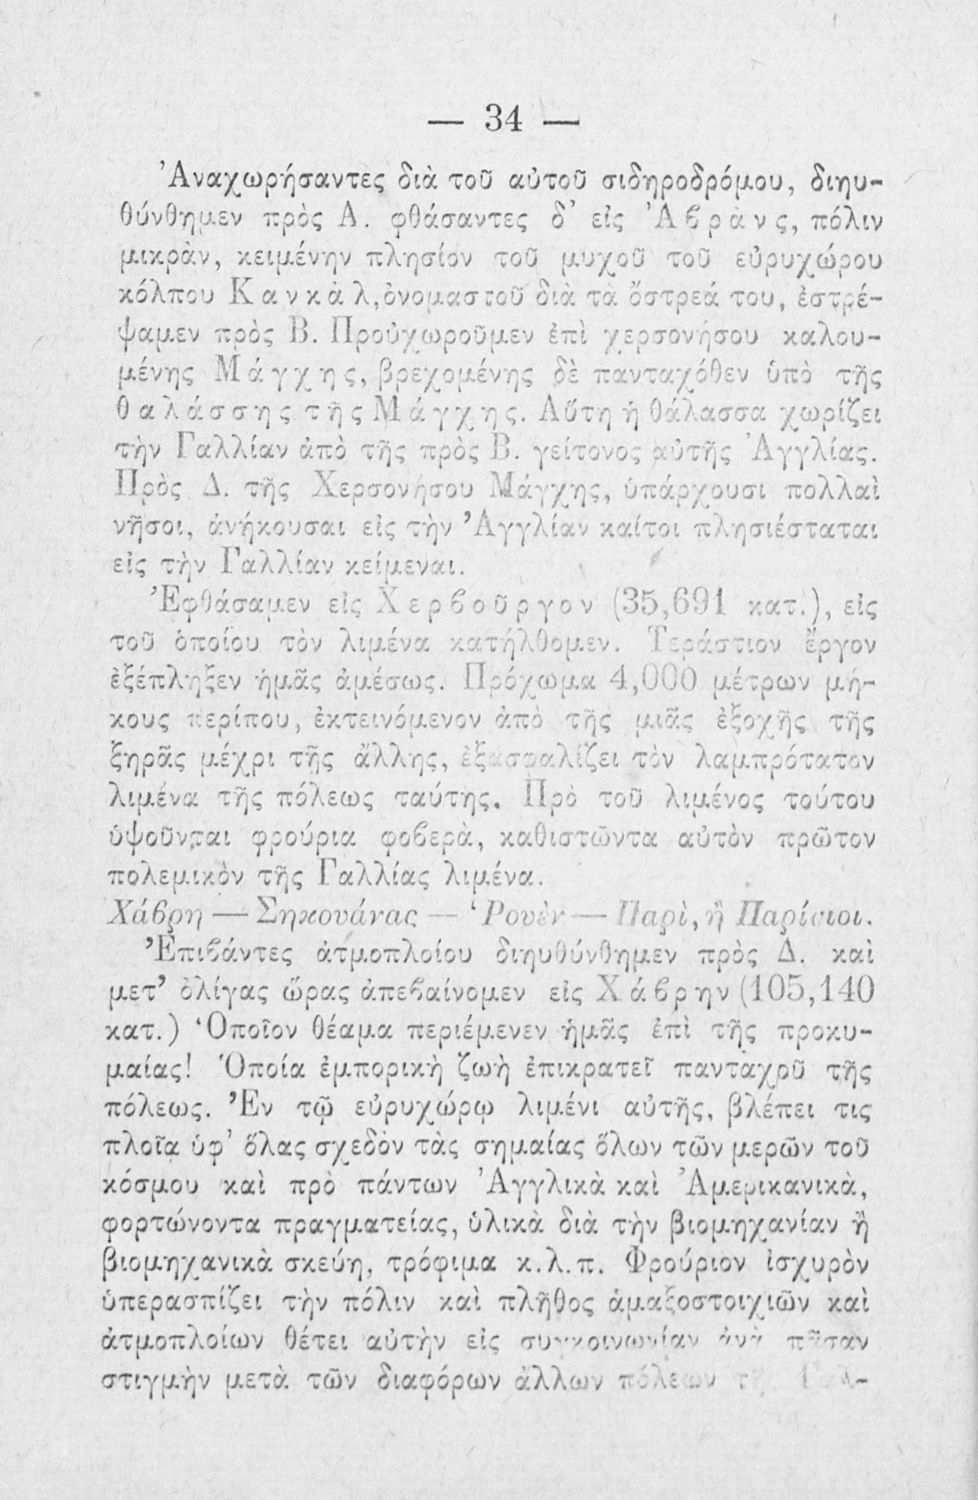 — 34 —
Ἀναχωρήσαντες διὰ τοῦ αὐτοῦ σιδηροδρόμου, διηυ-
θύνθημεν πρὸς Α. φθάσαντες δ’ εἰς Ἀβράνς, πόλιν
μικρὰν, κειμένην πλησίον τοῦ μυχοῦ τοῦ εὐρυχώρου
κόλπου Κανκὰλ, ὀνομαστοῦ διὰ τὰ ὄστρεά του, ἐστρέ-
ψαμεν πρὸς Β. Προὐχωροῦμεν ἐπὶ χερσονήσου καλου-
μένης Μάγχης, βρεχομένης δὲ πανταχόθεν ὑπὸ τῆς
θαλάσσης τῆς Μάγχης. Αὕτη ἡ θάλασσα χωρίζει
τὴν Γαλλίαν ἀπὸ τῆς πρὸς Β. γείτονος αὐτῆς Ἀγγλίας.
Πρὸς Δ. τῆς Χερσονήσου Μάγχης, ὑπάρχουσι πολλαὶ
νῆσοι, ἀνήκουσαι εἰς τὴν Ἀγγλίαν καίτοι πλησιέσταται
εἰς τὴν Γαλλίαν κείμεναι.
Ἐφθάσαμεν εἰς Χερβοῦργον (35,691 κατ.), εἰς
τοῦ ὁποίου τὸν λιμένα κατήλθομεν. Τεράστιον ἔργον
ἐξέπληξεν ἡμᾶς ἀμέσως. Πρόχωμα 4,000 μέτρων μή-
κους περίπου, ἐκτεινόμενον ἀπὸ τῆς μιᾶς ἐξοχῆς τῆς
ξηρᾶς μέχρι τῆς ἄλλης, ἐξασφαλίζει τὸν λαμπρότατον
λιμένα τῆς πόλεως ταύτης. Πρὸ τοῦ λιμένος τούτου
ὑψοῦνται φρούρια φοβερὰ, καθιστῶντα αὐτὸν πρῶτον
πολεμικὸν τῆς Γαλλίας λιμένα.
Χάβρη — Σηκουάνας — Ῥουὲν — Παρὶ, ἢ Παρίσιοι.
Ἐπιβάντες ἀτμοπλοίου διηυθύνθημεν πρὸς Δ. καὶ
μετ’ ὀλίγας ὥρας ἀπεβαίνομεν εἰς Χάβρην (105,140
κατ.) Ὁποῖον θέαμα περιέμενεν ἡμᾶς ἐπὶ τῆς προκυ-
μαίας! Ὁποία ἐμπορικὴ ζωὴ ἐπικρατεῖ πανταχοῦ τῆς
πόλεως. Ἐν τῷ εὐρυχώρῳ λιμένι αὐτῆς, βλέπει τις
πλοῖα ὑφ’ ὅλας σχεδὸν τὰς σημαίας ὅλων τῶν μερῶν τοῦ
κόσμου καὶ πρὸ πάντων Ἀγγλικὰ καὶ Ἀμερικανικὰ,
φορτώνοντα πραγματείας, ὑλικὰ διὰ τὴν βιομηχανίαν ἢ
βιομηχανικὰ σκεύη, τρόφιμα κ.λ.π. Φρούριον ἰσχυρὸν
ὑπερασπίζει τὴν πόλιν καὶ πλῆθος ἁμαξοστοιχιῶν καὶ
ἀτμοπλοίων θέτει αὐτὴν εἰς συγκοινωνίαν ἀνὰ πᾶσαν
στιγμὴν μετὰ τῶν διαφόρων ἄλλων πόλεων τῆς Γαλ-